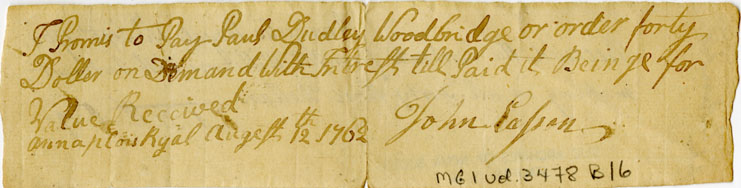 I Promis to Pay Paul Dudley Woodbridge or order forty
Doller on Demand With Intrest till Paid it Beinge for
Value Received
annaplois Ryal Augest 12th 1762 John Easson
MG1 vol. 3478 B/6